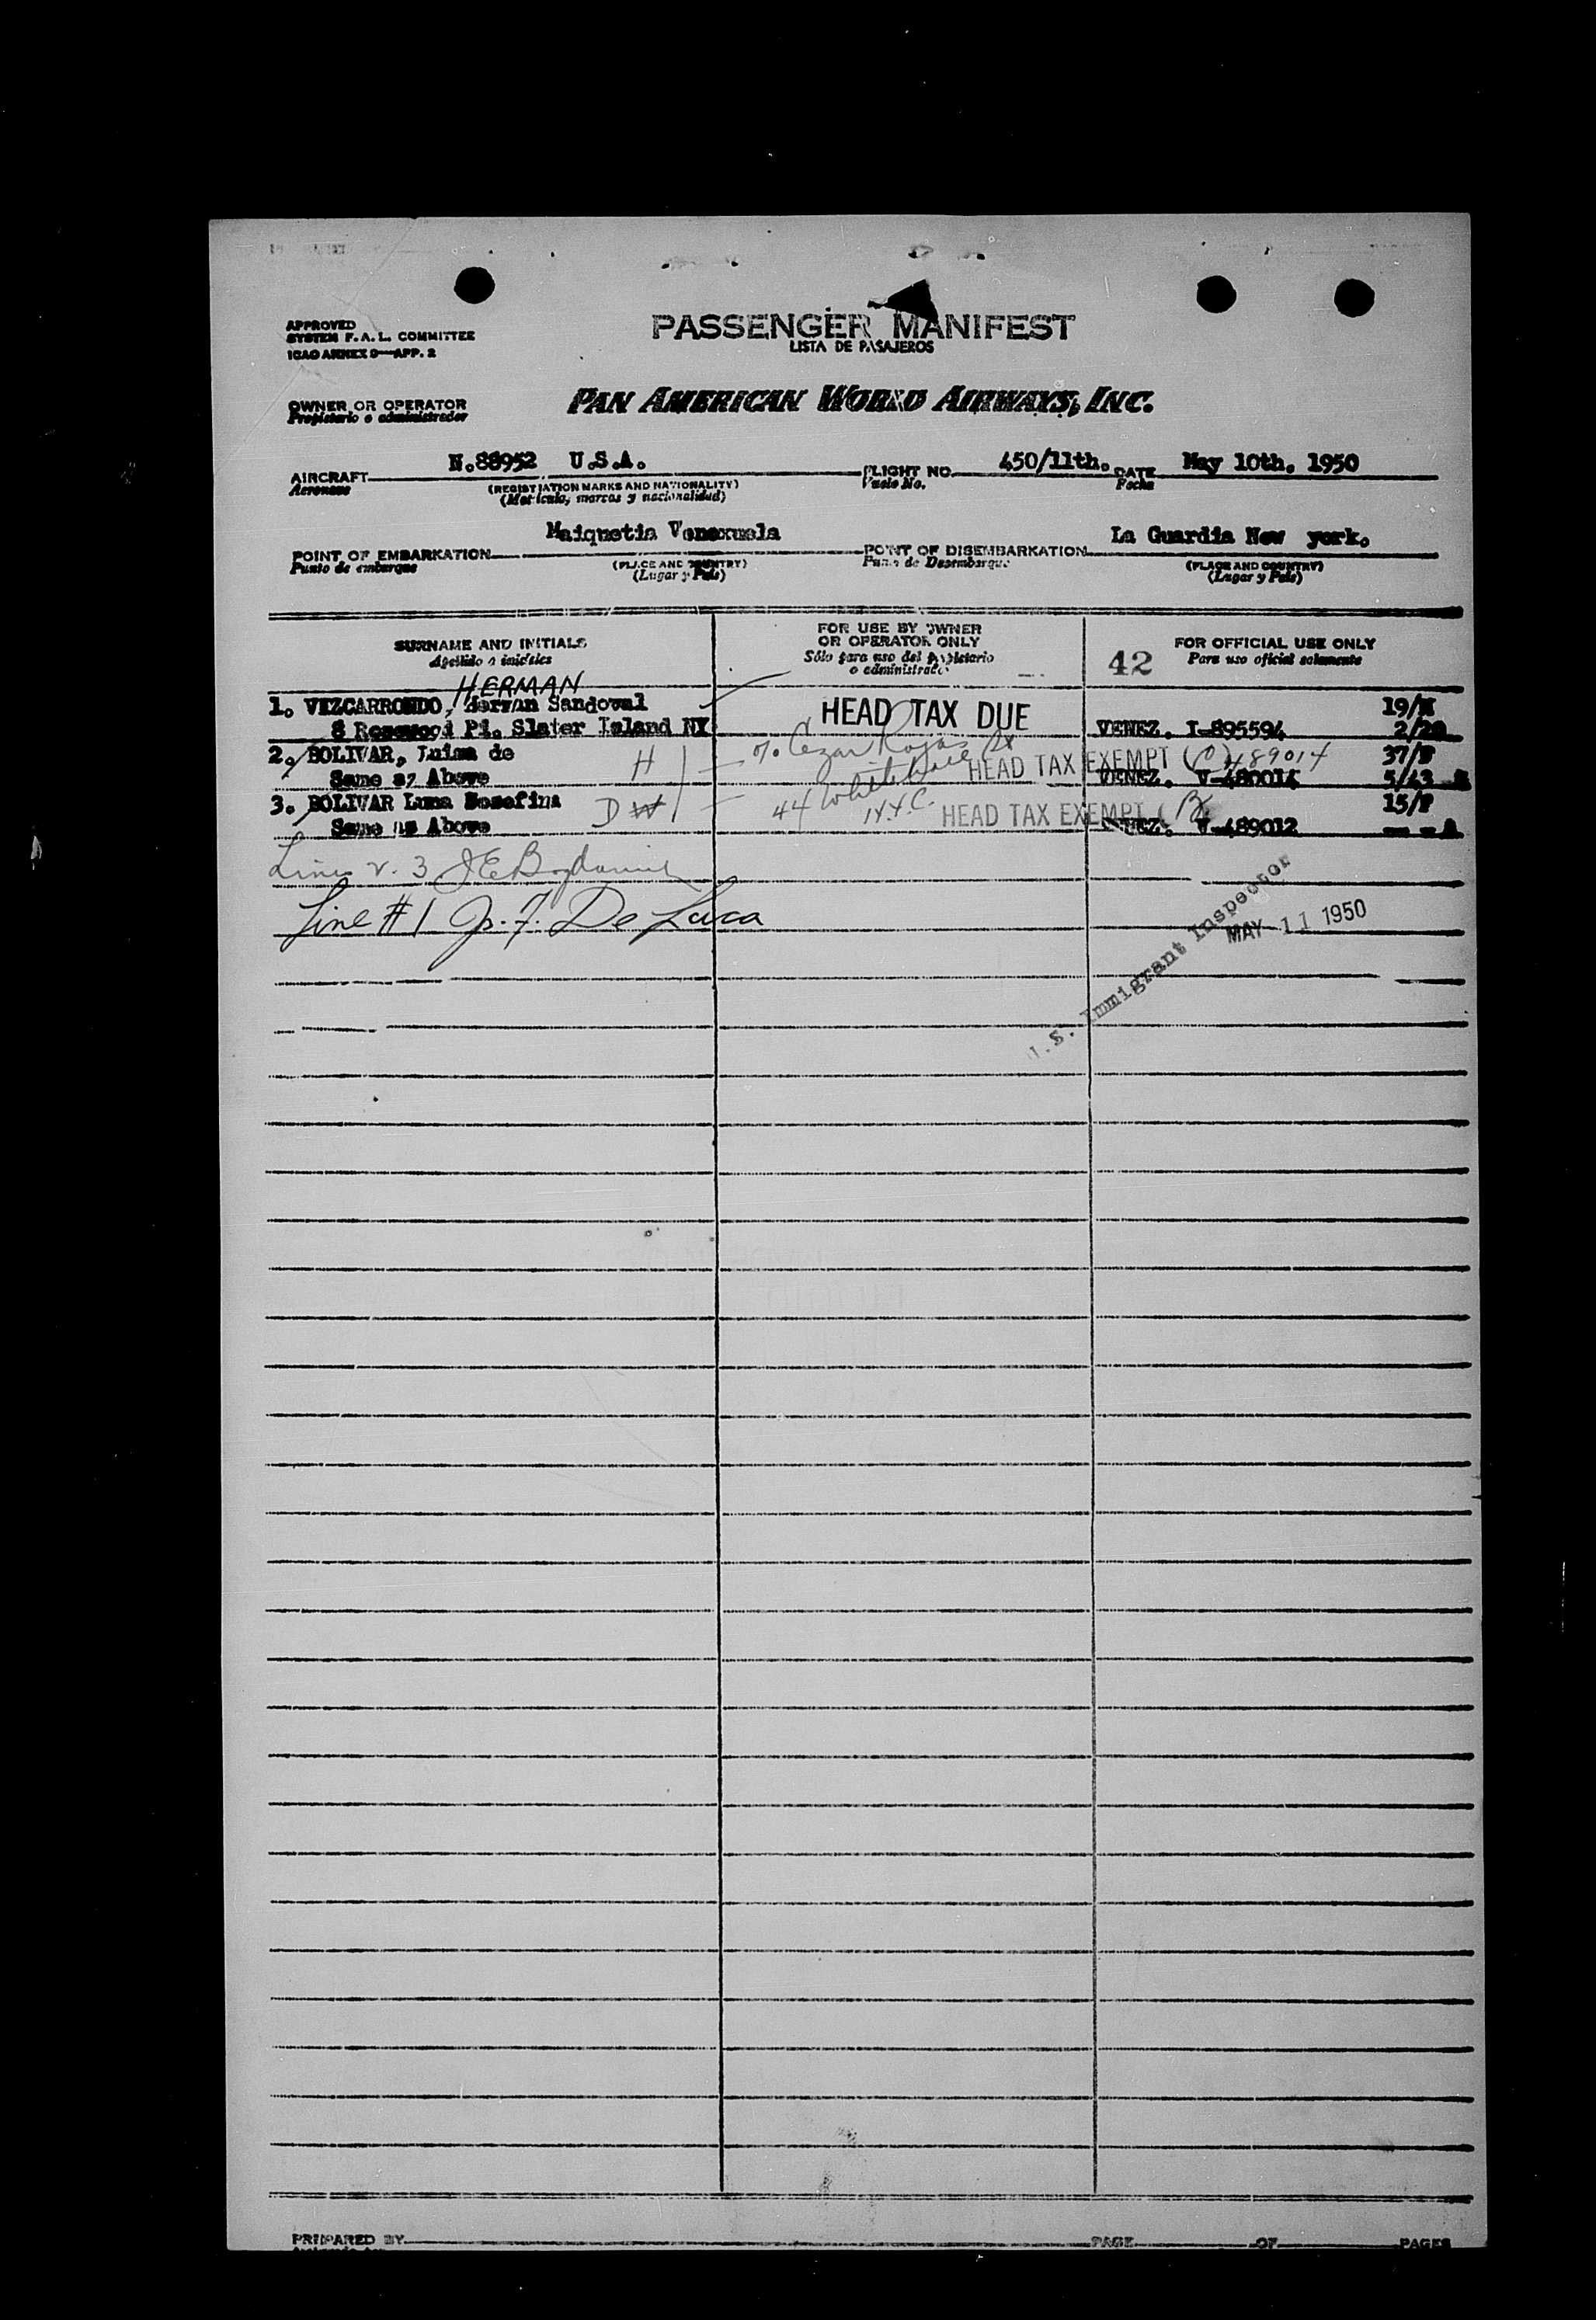 APPROVED
SYSTEM F.A.L. COMMITTEE
ICAO ANNEX 9—APP. 2
PASSENGER MANIFEST
LISTA DE PASAJEROS
OWNER OR OPERATOR
Propietario o administrador
PAN AMERICAN WORLD AIRWAYS, INC.
AIRCRAFT N.88952 U.S.A. FLIGHT NO. 450/11th. DATE May 10th. 1950
Aeronave (REGISTRATION MARKS AND NATIONALITY) Vuelo No. Fecha
(Matricula, marcas y nacionalidad)
POINT OF EMBARKATION Maiquetia Venexuela POINT OF DISEMBARKATION La Guardia New york.
Punto de embarque (PLACE AND COUNTRY) Punto de Desembarque (PLACE AND COUNTRY)
(Lugar y País) (Lugar y País)
SURNAME AND INITIALS FOR USE BY OWNER OR OPERATOR ONLY FOR OFFICIAL USE ONLY
Apellido o iniciales Sólo para uso del propietario o administrador 42 Para uso oficial solamente
HERMAN
1. VEZCARRONDO, Sandoval HEAD TAX DUE 19/
8 Rosewood Pl. Slater Island NY VENEZ. I-895594
2. BOLIVAR, Luisa de H % Cezar Rojas HEAD TAX EXEMPT 489014 37/
Same as Above VENEZ. 5/43
3. BOLIVAR Luma Josefina D W 44 Whitehall N.Y.C. HEAD TAX EXEMPT 15/
Same as Above VENEZ. V-489012 — — A
Line #1 J. F. De Luca
U.S. Immigrant Inspector
MAY 11 1950
PREPARED BY PAGE OF PAGES